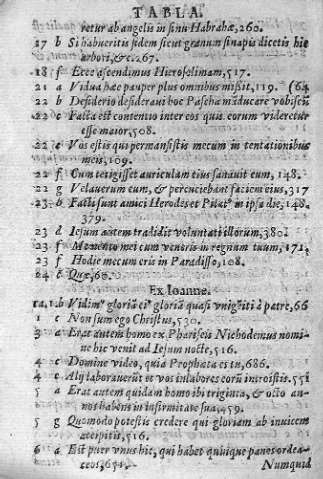 TABLA.
retur ab angelis in sinu Habrahæ, 260.
17 b Si habueritis fidem sicut granum sinapis dicetis hic
arbori, &c. 267.
18 f Ecce ascendimus Hierosolimam, 517.
21 a Vidua hæc pauper plus omnibus missit, 119. (64
22 b Desiderio desideravi hoc Pascha māducare vobiscū
22 Facta est contentio inter eos quis eorum videretur
esse maior, 508.
22 e Vos estis qui permansistis mecum in tentationibus
meis, 109.
22 f Cum tetigisset auriculam eius sanauit eum, 148.
22 g Velauerunt eum, & percutiebant faciem eius, 317
23 b Facti sunt amici Herodes et Pilatº in ipsa die, 148.
379.
23 d Iesum autem tradidit voluntati illorum, 380.
23 f Memento mei cum veneris in regnum tuum, 171,
23 f Hodie mecum eris in Paradisso, 108.
24 c Quæ, 60.
Ex Ioanne.
1 a, 1 b Vidimº gloriā eiº gloriā quasi vnigēiti à patre, 66
1 c Non sum ego Christus, 530.
3 a Erat autem homo ex Phariseis Nichodemus nomi-
ne hic venit ad Iesum nocte, 516.
4 c Domine video, quia Propheta es tu, 686.
4 e Alij laborauerūt et vos in labores eorū introistis. 551
5 a Erat autem quidam homo ibi triginta, & octo an-
nos habens in infirmitate sua, 459.
5 g Quomodo potestis credere qui gloriam ab inuicem
accipitis, 516.
6 a Est puer vnus hic, qui habet quinque panes ordea-
ceos, 651.
Numquid